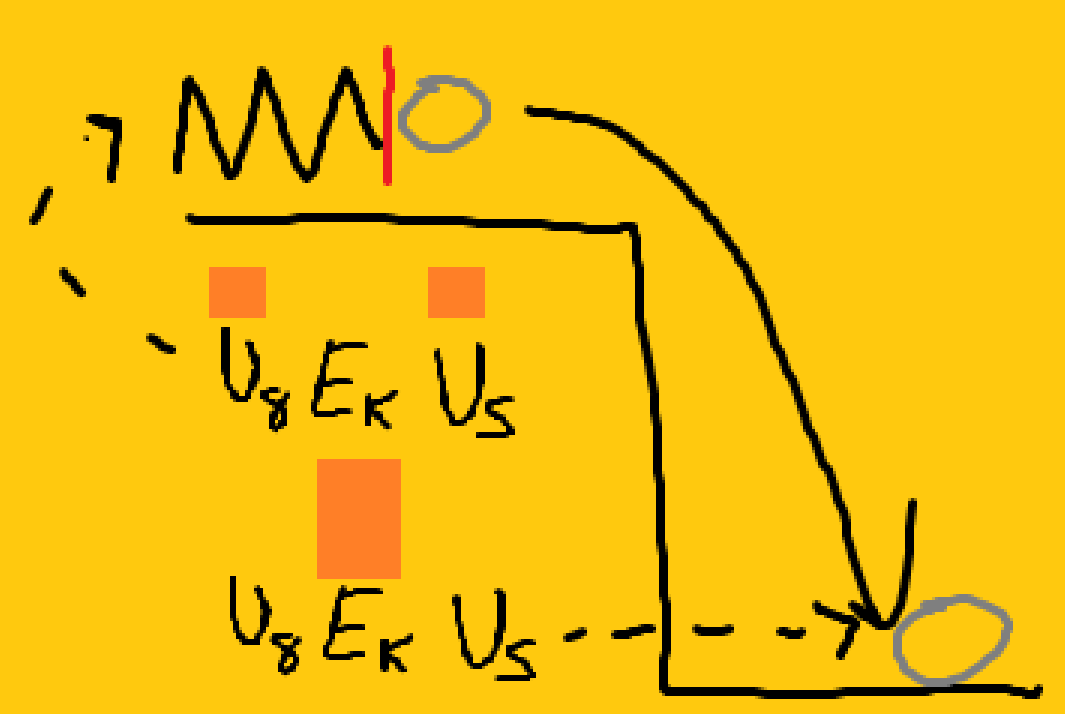 Ug Ek Us
Ug Ek Us